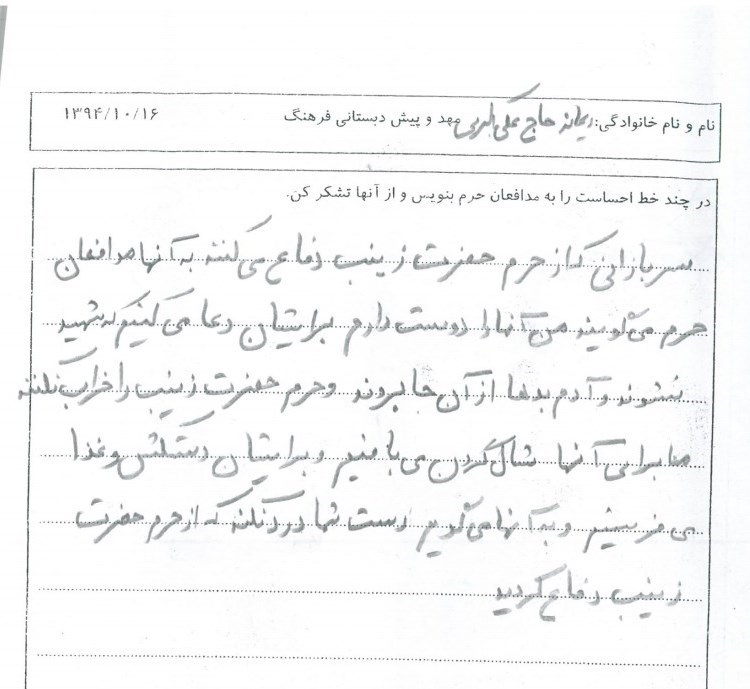 نام و نام خانوادگی: ریحانه حاج علی اکبری مهد و پیش دبستانی فرهنگ ۱۳۹۴/۱۰/۱۶
در چند خط احساست را به مدافعان حرم بنویس و از آنها تشکر کن.
سربازانی که از حرم حضرت زینب دفاع می کنند به آنها مدافعان
حرم می گویند من آنها را دوست دارم برایشان دعا می کنیم که شهید
نشوند و آدم بدها از آن جا بروند وحرم حضرت زینب را خراب نکنند
ما برای آنها شال گردن می بافیم و برایشان دستکش و غذا
می فرستیم و به آنها می گویم دست شما درد نکند که از حرم حضرت
زینب دفاع کردید